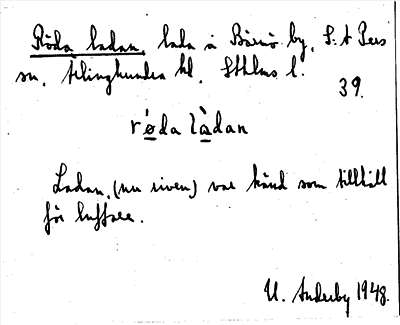 Röda ladan, lada å Börsö by, S:t Pers
sn. Ärlinghundra hd. Sthlms l.
39.
rǿda là̱dan
Ladan, (nu riven) var känd som tillhåll
för luffare.
U. Anderby 1948.